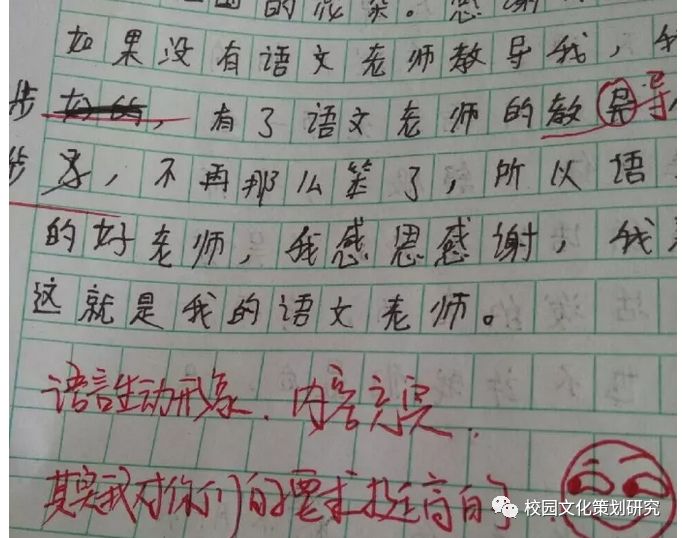 的花朵。感谢
如果没有语文老师教导我，我
步好的，有了语文老师的教导导
步了，不再那么笨了，所以语
的好老师，我感恩感谢，我
这就是我的语文老师。
语言生动形象．内容充实．
其实我对你们的要求挺高的
校园文化策划研究